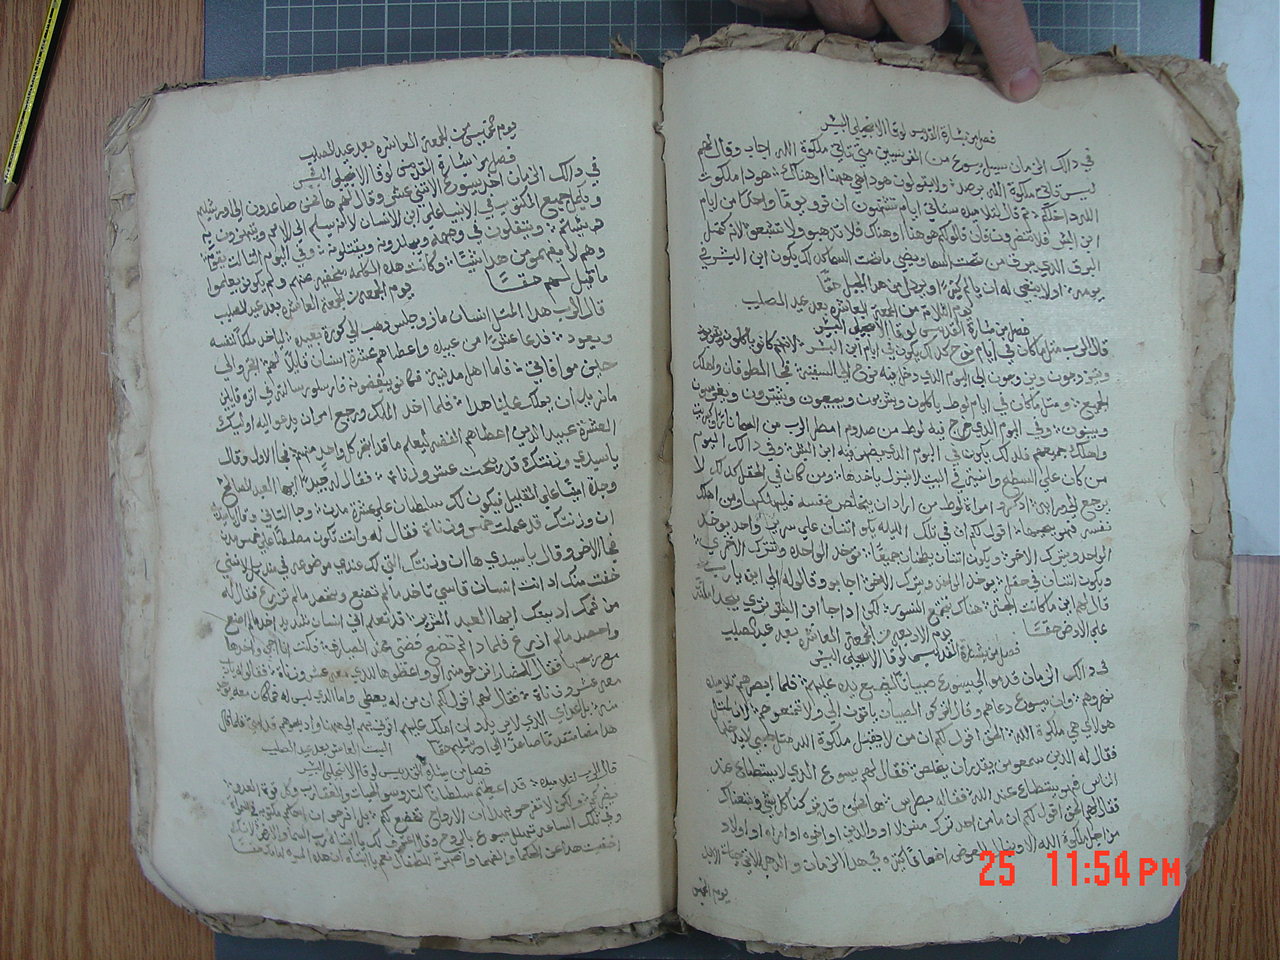 فصل من بشارة القديس لوقا الانجيلي البشير
في ذالك الزمان سيل يسوع من الفريسيين متي تاتي ملكوة الله اجاب وقال لهم
ليس تاتي ملكوة الله برصد ولا يقولون هودا هي ههنا او هناك هودا ملكوت
الله داخلكم ثم قال لتلاميده ستاتي ايام تشتهون ان تروا يومًا واحدًا من ايام
ابن البشر فلا تنضرون فان قالوا لكم هودا هنا او هناك فلا تدهبوا ولا تتبعوا لانه كمتل
البرق الذي يبرق من تحت السما ويضي ما تحت السما كدلك يكون ابن البشر في
يومه اولا ينبغي له ان يالم كثيرًا ويردل من هدا الجيل حقًا
يوم الثلاثا من الجمعة العاشره بعد عيد الصليب
فصل من بشارة القديس لوقا الانجيلي البشير
قال الرب مثل ما كان في ايام نوح كدلك يكون في ايام ابن البشر لانهم كانوا ياكلون ويشربون
ويتزوجون ويزوجون الي اليوم الدي دخل فيه نوح الي السفينة فجا الطوفان واهلك
الجميع ومثل ما كان في ايام لوط ياكلون ويشربون ويبيعون ويشترون ويغرسون
ويبنون وفي اليوم الدي خرج فيه لوط من صدوم امطر الرب من السما نارًا وكبريت
واهلك جميعهم فكدلك يكون في اليوم الدي يضهر فيه ابن البشر وفي دالك اليوم
من كان علي السطح وانيته في البيت لا ينزل ياخدها ومن كان في الحقل كدلك لا
يرجع الي ورايه ادكروا امراة لوط من اراد ان يخلص نفسه فليهلكها ومن اهلك
نفسه فهو يحييها اقول لكم ان في تلك الليله يكونا اثنان علي سرير واحد يوخد
الواحد ويترك الاخر ويكون اثنتان يطحنان جميعًا توخد الواحده وتترك الاخري
ويكون اثنان في حقل يوخد الواحد ويترك الاخر اجابو وقالو له الي اين يا رب
قال لهم اين ما كانت الجثة هناك تجتمع النسور لكن ادا جا ابن البشر تري يجد امانة
علي الارض حقًا يوم الاربعا من الجمعة العاشره بعد عيد الصليب
فصل من بشارة القديس لوقا الانجيلي البشير
في دالك الزمان قدمو الي يسوع صبيانًا ليضع يده عليهم فلما ابصرهم تلاميده
نهروهم وان يسوع دعاهم وقال اتركو الصبيان ياتون الي ولا تمنعوهم لان لمثل
هولاي هي ملكوة الله الحق اقول لكم ان من لا يقبل ملكوة الله مثل صبي لا يدخلها
فقال له الدين سمعو من يقدر ان يخلص فقال لهم يسوع الدي لا يستطاع عند
الناس فهو يستطاع عند الله فقال له بطرس ها نحن قد تركنا كل شي وتبعناك
فقال لهم الحق اقول لكم ان ما من احد ترك منزلا او والدين او اخوه او امراه او اولاد
من اجل ملكوة الله الا وينال العوض اضعافًا كثيره في هدا الزمان وفي الدهر الاتي حياة الابد
يوم الخميس
يوم خميس من الجمعة العاشره بعد عيد الصليب
فصل من بشارة القديس لوقا الانجيلي البشير
في دالك الزمان اخد يسوع الاثني عشر وقال لهم ها نحن صاعدون الي اورشليم
ويكمل جميع المكتوب في الانبيا علي ابن الانسان لانه يسلم الي الامم ويستهزون به
ويشتم ويتفلون في وجهه ويجلدونه ويقتلونه وفي اليوم الثالث يقوم
وهم لا يفهمو من هدا شيًا وكانت هده الكلمه مخفيه عنهم ولم يكونو يعلموا
ما قيل لهم حقًا يوم الجمعة من الجمعة العاشره بعد عيد الصليب
قال الرب هدا المثل انسان ماز وجليس دهب الي كورة بعيده لياخد ملكًا لنفسه
ويعود فدعا عشرة من عبيده واعطاهم عشرة امنان قايلًا لهم اتجروا الي
حين موافاتي فاما اهل مدينته فكانو يبغضونه فارسلو رسالة في اتره قايلين
ما نريد ان يملك علينا هدا فلما اخد الملك ورجع امر ان يدعو له اوليك
العشرة عبيد الدين اعطاهم الفضه ليعلم ما قد اتجر كل واحد منهم فجا الاول وقال
يا سيدي وزنتك قد ربحت عشر وزنات فقال له جيد ايها العبد الصالح
وجدة امينًا علي القليل فيكون لك سلطان علي عشرة مدن وجا الثاني وقال يا سيد
ان وزنتك قد عملت خمس وزنات فقال له وانت تكون مسلطًا علي خمس مدن
فجا الاخر وقال يا سيدي ها ان وزنتك التي لك عندي موضوعه في منديل لانني
خفت منك اد انت انسان قاسي تاخد ما لم تضع وتحصد ما لم تزرع فقال له
من فمك ادينك ايها العبد الشرير قد تعلم اني انسان شديد اخد ما لم اضع
واحصد ما لم ازرع فلمادا لم تضع فضتي علي الصيارفه فكنت انا اجي واخدها
مع ربحها فقال للحضار انزعو منه الوزنه واعطوها للدي معه عشر وزناة فقالو له يا رب
معه عشر وزناة فقال لهم اقول لكم ان من له يعطي واما الدي ليس له فما كان معه يوخد
منه بل اعداي الدين لا يريدون ان املك عليهم اتوني بهم الي ههنا وادبحوهم قدامي فلما قال
هدا مضا متقدمًا صاعدًا الي اورشليم حقًا السبت العاشر بعد عيد الصليب
فصل من بشارة القديس لوقا الانجيلي البشير
قال الرب لتلاميده قد اعطيتكم سلطانًا لتدوسو الحيات والعقارب وكل قوة العدو
يضركم ولكن لا تفرحو بهدا ان الارواح تخضع لكم بل افرحو ان اسماكم مكتوبه في السماه
وفي تلك الساعه تهلل يسوع بالروح وقال اعترف لك يا ابتاه رب السما والارض لانك
اخفيت هدا عن الحكما والفهما واضهرته للاطفال نعم يا ابتاه ان هده المسره امامك حقًا